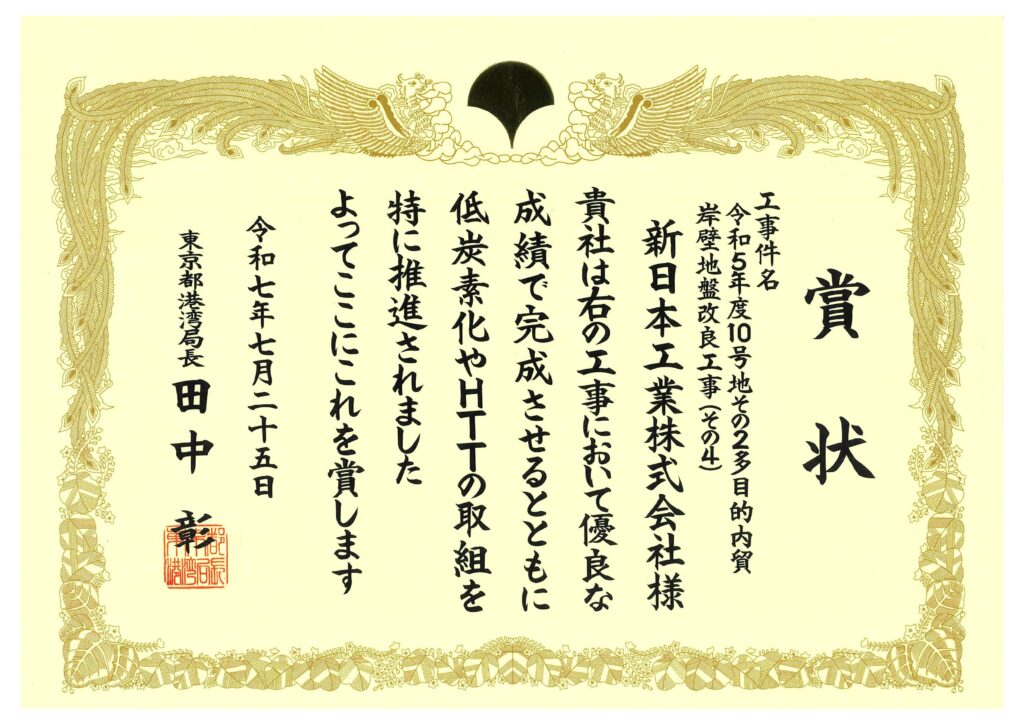 賞状
工事件名
令和5年度10号地その2多目的内貿
岸壁地盤改良工事(その4)
新日本工業株式会社様
貴社は右の工事において優良な
成績で完成させるとともに
低炭素化やHTTの取組を
特に推進されました
よってここにこれを賞します
令和七年七月二十五日
東京都港湾局長 田中 彰